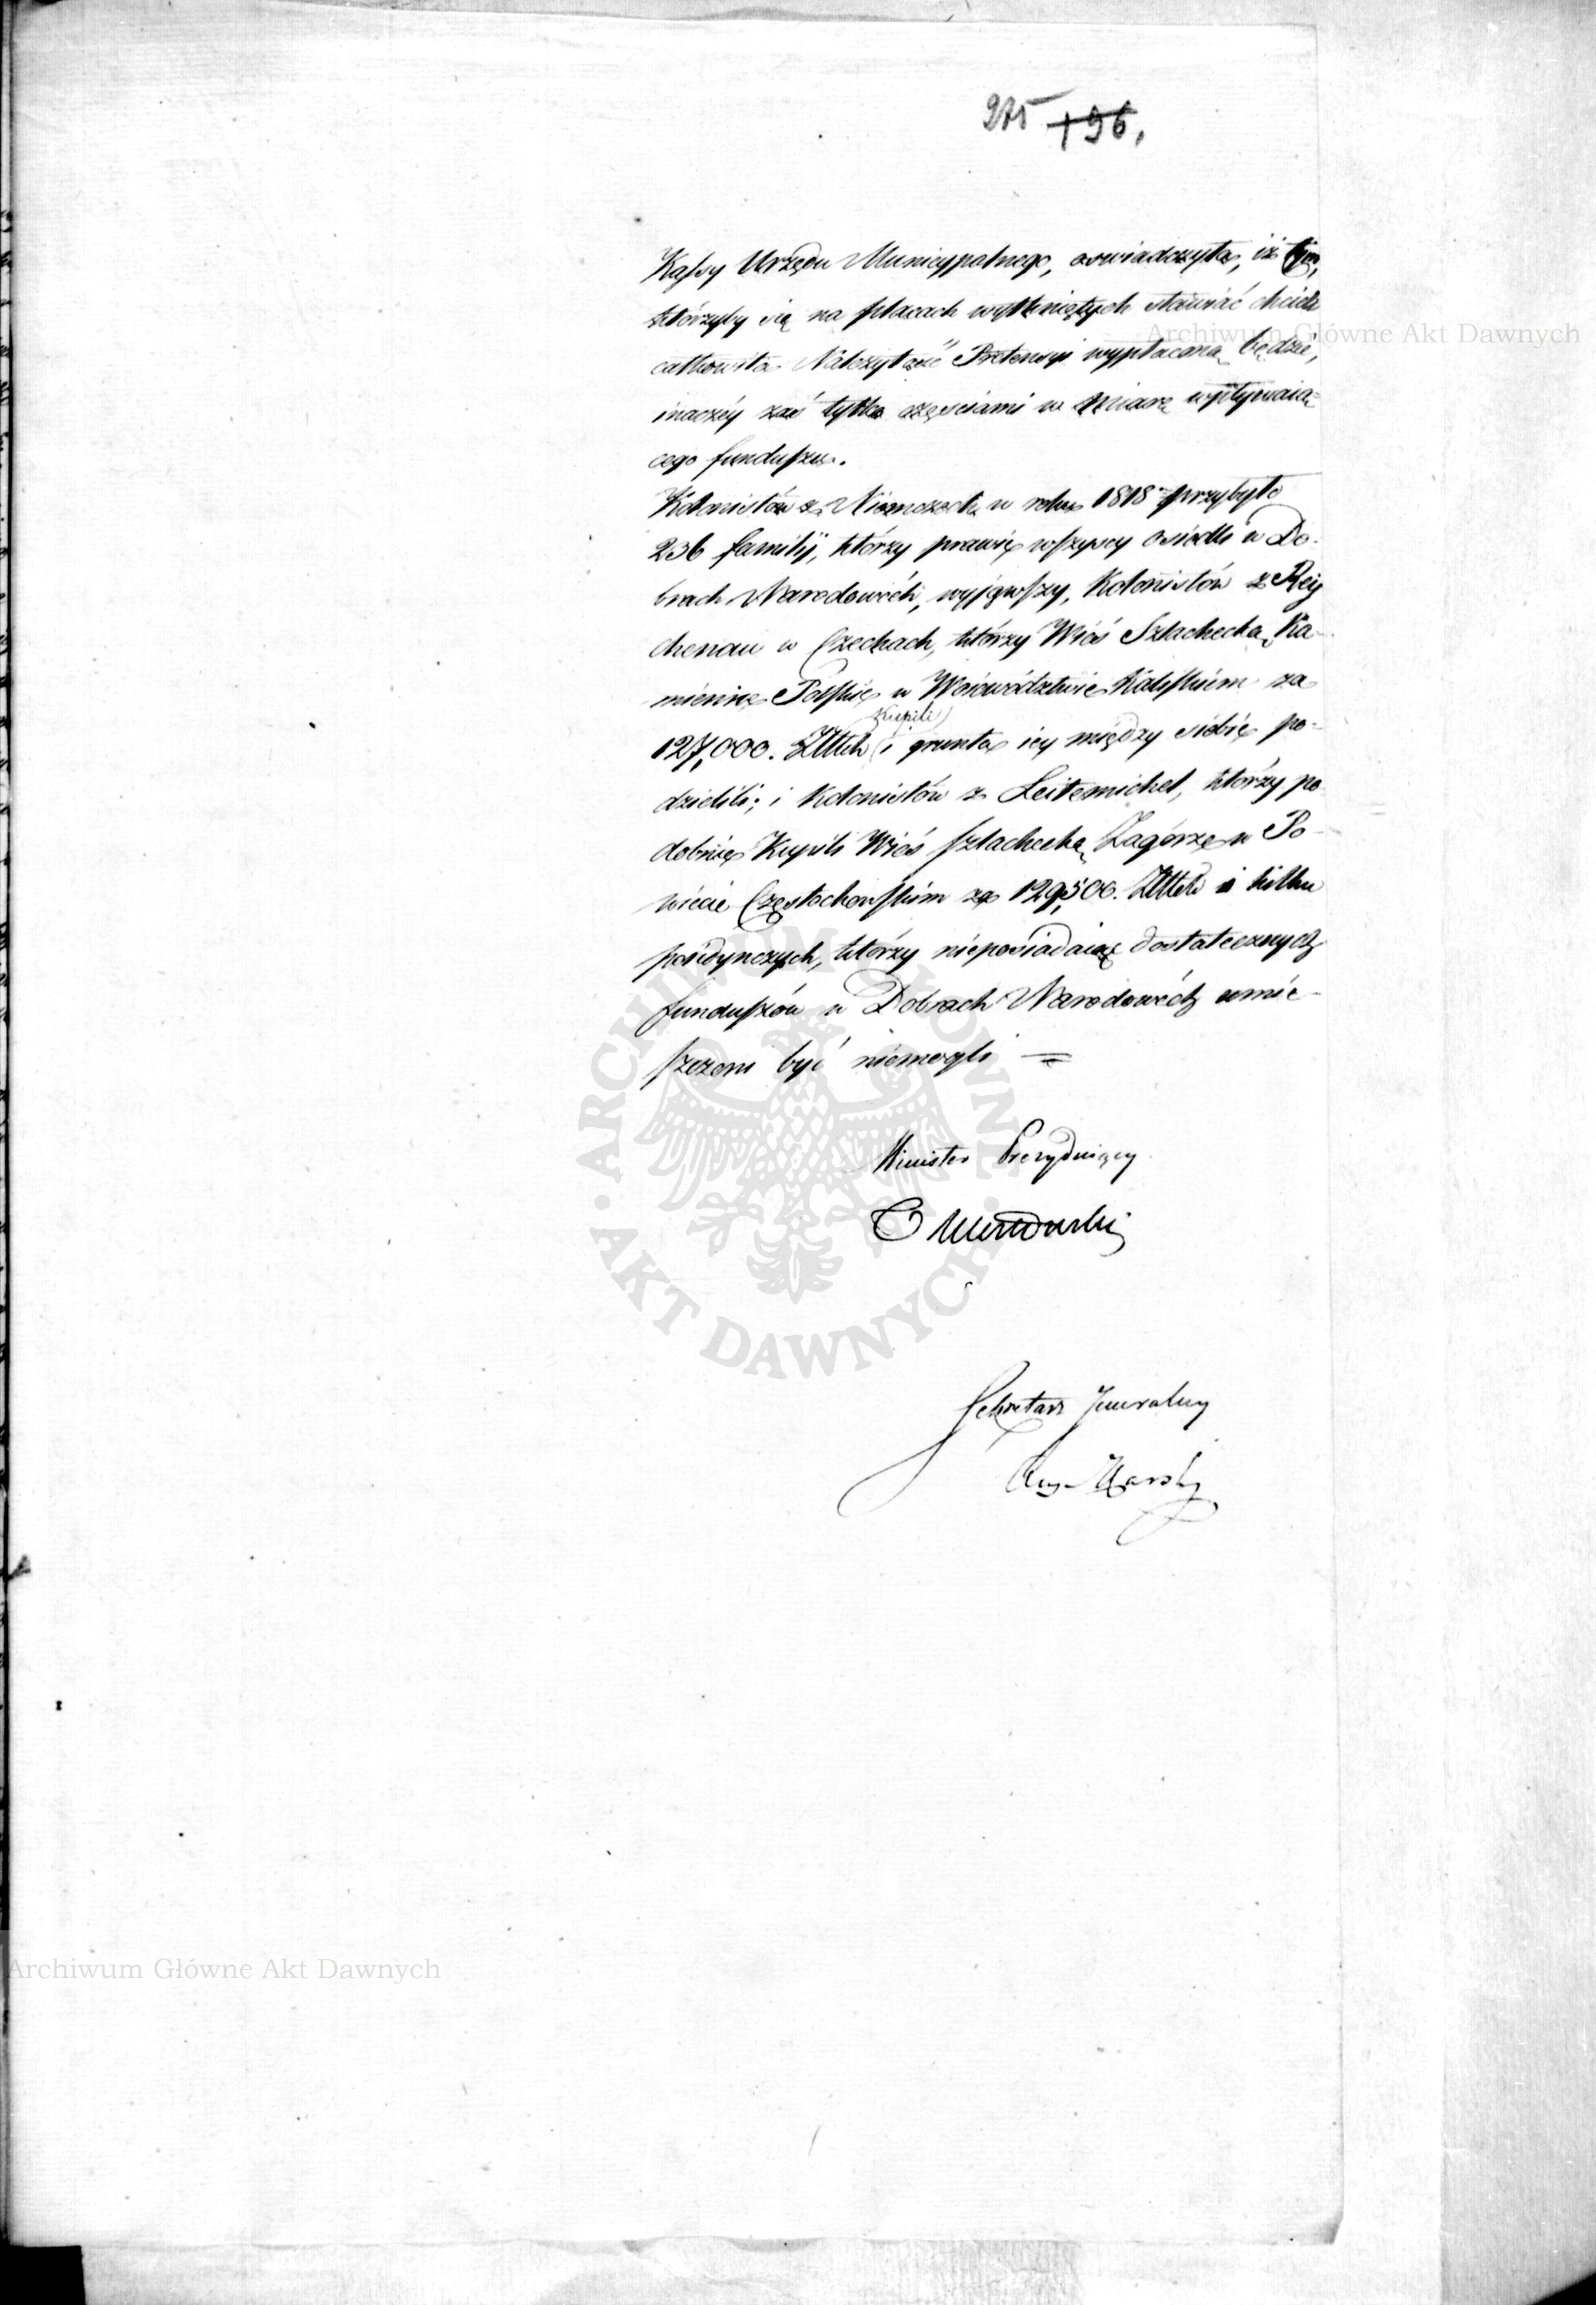 275 196.
Kassy Urzędu Municypalnego, oswiadczyła, iż tym,
którzyby się na placach wytkniętych stawiać chcieli
Archiwum Główne Akt Dawnych
całkowita Należytość Pretensyi wypłaconą będzie,
inaczéy zaś tylko częsciami w miarę wpływaią=
cego funduszu.
Kolonistów z Niemczech w roku 1818 przybyło
236 familij, którzy prawie wszyscy osiedli w Do-
brach Narodowéch, wyjąwszy, Kolonistów z Rey
chenau w Czechach, którzy Wieś Szlachecką Ka-
mienicę Polskię w Woiewództwie Kaliskiém za
Kupili
127,000. Złłch i grunta iey między siebie po-
dzielili; i Kolonistów z Leitemichel, którzy po
dobnie Kupili Wieś szlachecką Zagórze w Po-
wiecie Częstochowskim za 129,500. Złłch i kilku
poiedynczych, którzy nieposiadaiąc dostatecznych
funduszów w Dobrach Narodowéch umie-
szczeni być niemogli =
Minister Prezyduiący
Mostowski
Sekretarz Jeneralny
Aug. Karski
ARCHIWUM GŁÓWNE AKT DAWNYCH
Archiwum Główne Akt Dawnych